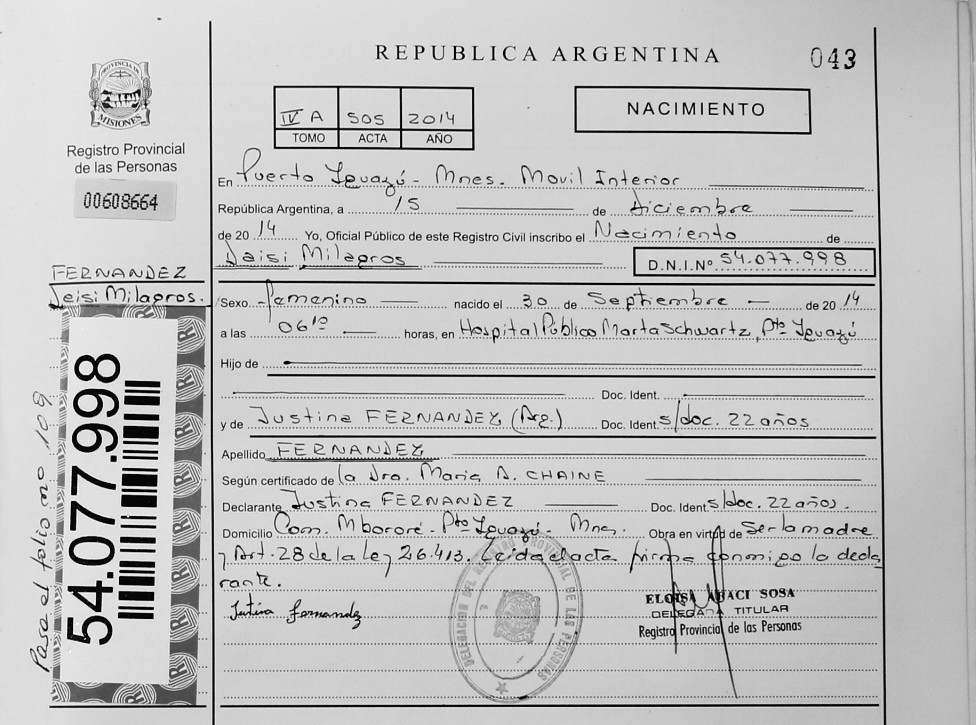 REPUBLICA ARGENTINA
043
PROVINCIA DE
MISIONES
Registro Provincial
de las Personas
00608664
IV A 505 2014
TOMO ACTA AÑO
NACIMIENTO
En Puerto Iguazú - Mnes. Movil Interior
República Argentina, a 15 de diciembre
de 20 14 Yo, Oficial Público de este Registro Civil inscribo el Nacimiento de
Deisi Milagros
D.N.I. Nº 54.077.998
FERNANDEZ
Deisi Milagros.
Sexo femenino nacido el 30 de Septiembre de 20 14
a las 06¹⁰ horas, en Hospital Público Marta Schwartz, Pto Iguazú
Hijo de
Doc. Ident.
y de Justina FERNANDEZ (Arg.) Doc. Ident. s/doc. 22 años
Apellido FERNANDEZ
Según certificado de la Dra. Maria A. CHAINE
Declarante Justina FERNANDEZ Doc. Ident. s/doc. 22 años.
Domicilio Com. Mbororé - Pto Iguazú - Mnes. Obra en virtud de Ser la madre
y Art. 28 de la Ley 26.413. Leida el acta firma conmigo la decla
rante.
Justina fernandez
DELEGACION DEL REGISTRO PROVINCIAL DE LAS PERSONAS
ELOISA ABACI SOSA
DELEGADA TITULAR
Registro Provincial de las Personas
54.077.998
Pasa al folio nro. 109